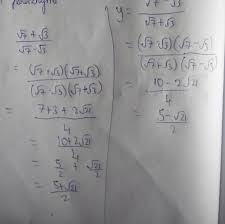 √7 + √3
√7 - √3
= (√7 + √3) (√7 + √3)
(√7 - √3) (√7 + √3)
= 7 + 3 + 2√21
4
= 10 + 2√21
4
= 5/2 + √21/2
= 5 + √21
2
y = √7 - √3
√7 + √3
= (√7 - √3) (√7 - √3)
(√7 + √3) (√7 - √3)
= 10 - 2√21
4
= 5 - √21
2